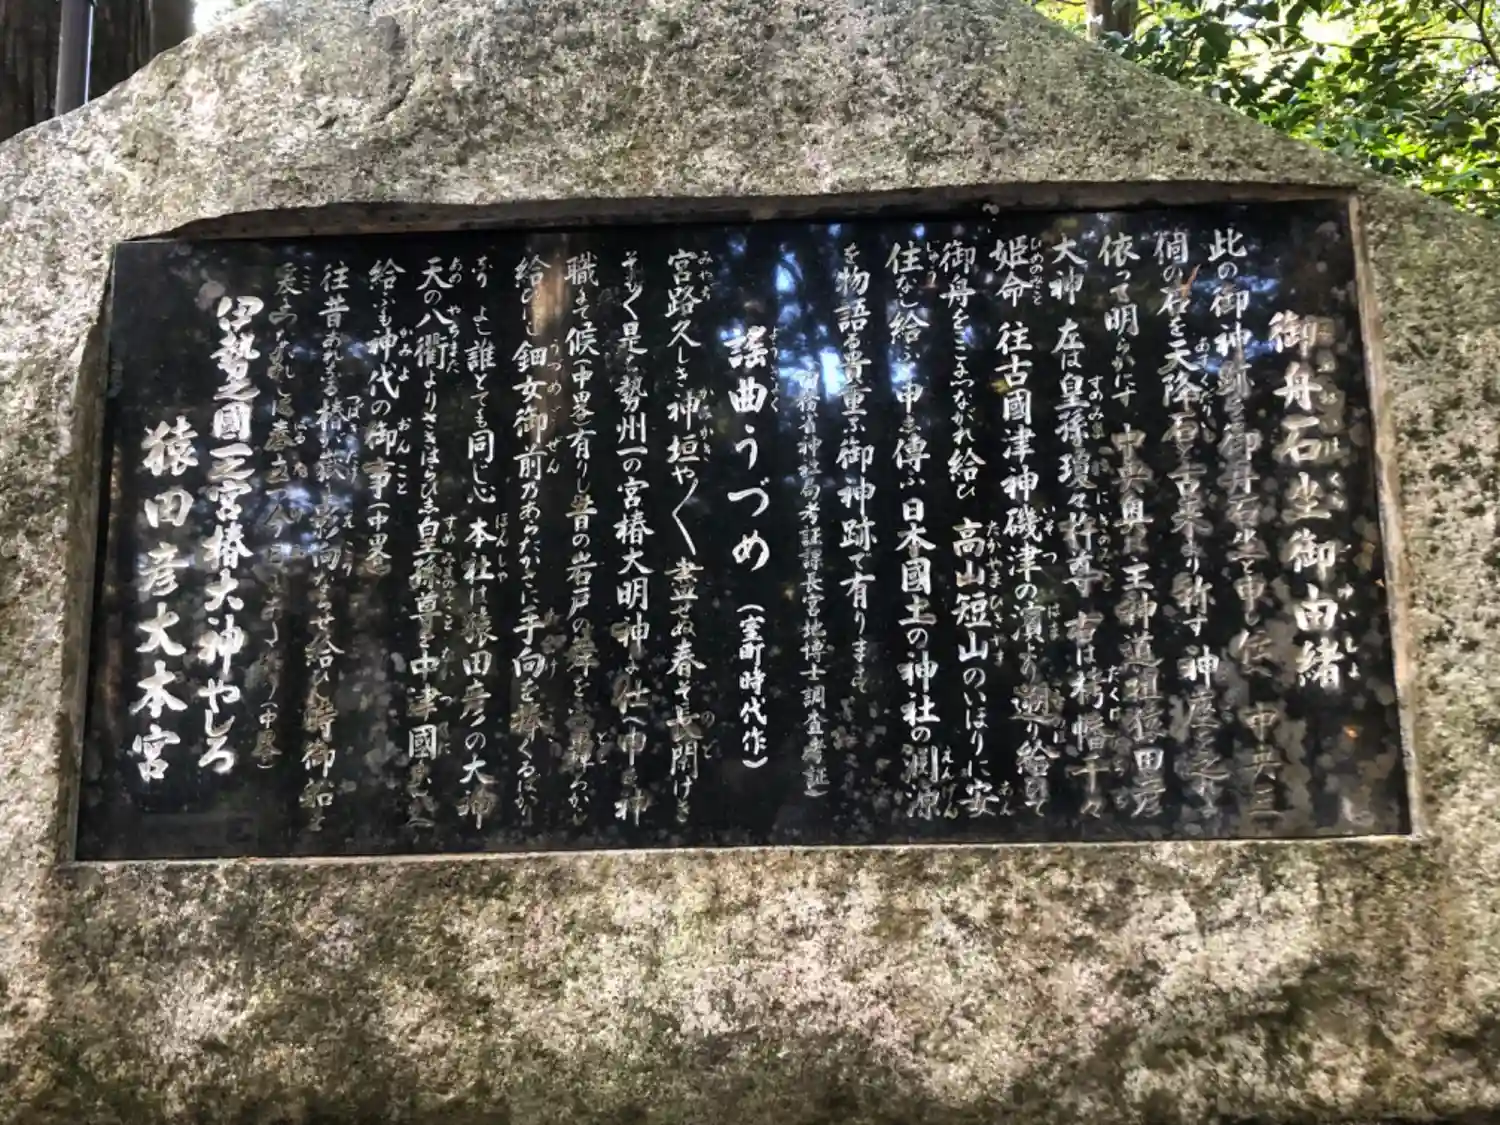 御舟石坐御由緒
此の御神跡を御舟石坐と申し伝 中央三
個の石を天降石と古来より称す 神座之
依って明らかにす 中央奥 主神道祖猿田彦
大神 左は皇孫瓊々杵尊 右は栲幡千々
姫命 往古國津神磯津の濱より遡り給ひて
御舟をここにつながれ給ひ 高山短山のいほりに安
住なし給ふ 申し傳ふ 日本國土の神社の渕源
を物語る貴重な御神跡で有ります
神社局考証課長宮地博士調査考証
謡曲うづめ (室町時代作)
宮路久しき神垣や〱 盡せぬ春ぞ長閑けき
そも〱是は勢州一の宮椿大明神の社へ申す神
職にて候(中畧)有りし昔の岩戸の
給ひし 鈿女御前力あらたかさに手向を捧ぐるばかり
なり よし誰とても同じ心 本社は猿田彦の大神
天の八衢よりさきはらひし皇孫尊を中津國
給ふも神代の御事(中畧)
往昔あれなる椿が嶽に影向ならせ給ひし時御船を
(中畧)
伊勢之國一之宮椿大神やしろ
猿田彦大本宮